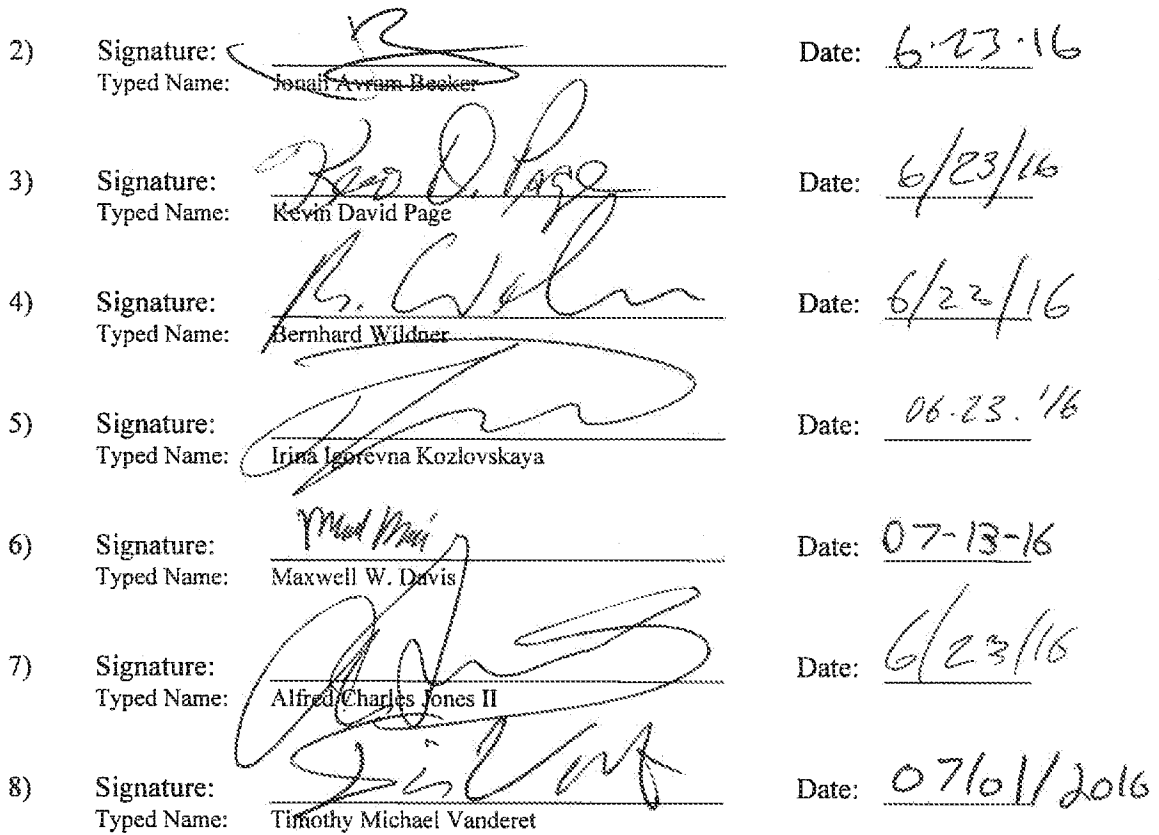 2) Signature: Date: 6-23-16
Typed Name: Jonah Avram Becker
3) Signature: Kevin D. Page Date: 6/23/16
Typed Name: Kevin David Page
4) Signature: Date: 6/22/16
Typed Name: Bernhard Wildner
5) Signature: Date: 06.23.'16
Typed Name: Irina Igorevna Kozlovskaya
6) Signature: Date: 07-13-16
Typed Name: Maxwell W. Davis
7) Signature: Date: 6/23/16
Typed Name: Alfred Charles Jones II
8) Signature: Date: 07/01/2016
Typed Name: Timothy Michael Vanderet